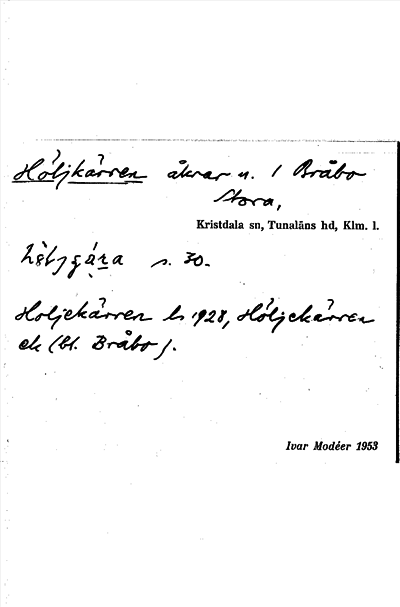 Höljkärren åkrar n. 1 Bråbo
Stora,
Kristdala sn, Tunaläns hd, Klm. l.
s. 30.
Holjekärren ls 1928, Höljekärren
ek (bl. Bråbo).
Ivar Modéer 1953